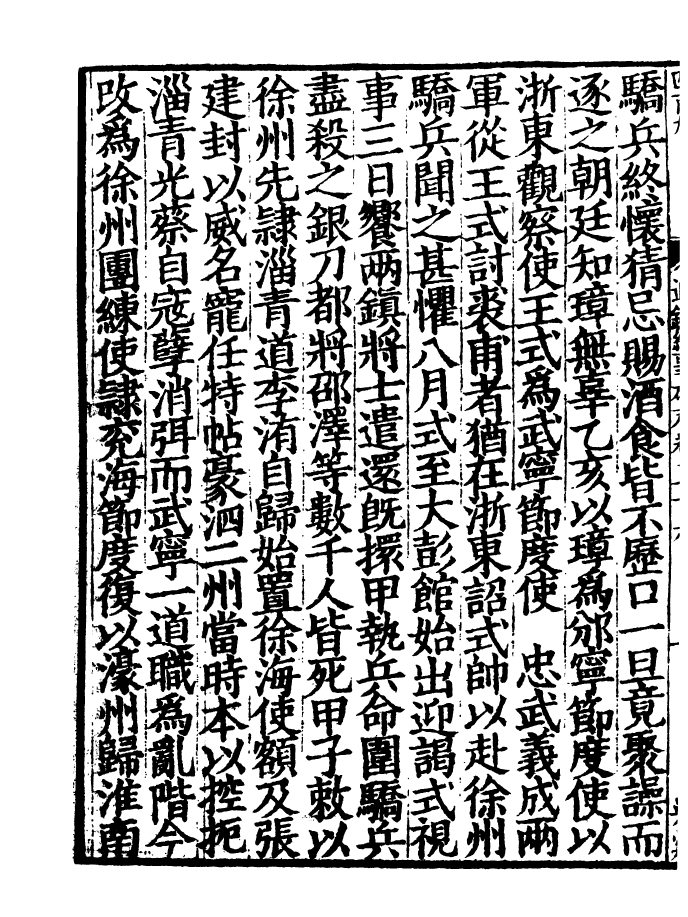 驕兵終懷猜忌賜酒食皆不歷口一旦竟聚譟而
逐之朝廷知璋無辜乙亥以璋爲邠寧節度使以
浙東觀察使王式爲武寧節度使　忠武義成兩
軍從王式討裘甫者猶在浙東詔式帥以赴徐州
驕兵聞之甚懼八月式至大彭館始出迎謁式視
事三日饗兩鎮將士遣還旣擐甲執兵命圍驕兵
盡殺之銀刀都將邵澤等數千人皆死甲子敕以
徐州先隷淄青道李洧自歸始置徐海使額及張
建封以威名寵任特帖豪泗二州當時本以控扼
淄青光蔡自寇孽消弭而武寧一道職爲亂階今
改爲徐州團練使隷兖海節度復以濠州歸淮南